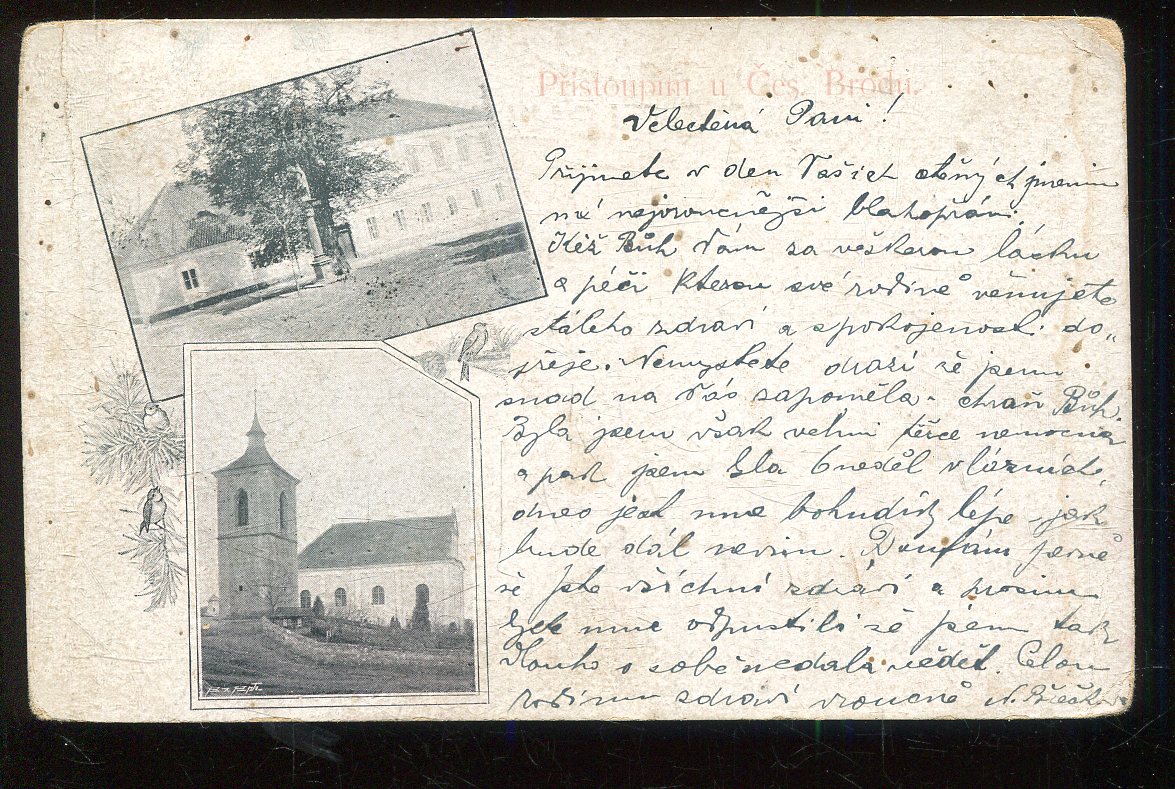 Přistoupim u Čes. Brodu.
Velectěná Paní!
Přijmete v den Vašich ctěných jmenin
nejvroucnější blahopřání.
Kéž Bůh Vám za veškerou lásku
a péči kterou své rodině věnujete
stálého zdraví a spokojenosti do„
přeje. Nemyslete drazí že jsem
snad na Vás zapoměla – chraň Bůh.
Byla jsem však velmi těžce nemocna
a pak jsem byla 6 neděl v lázních,
dnes jest mne bohudík lépe jak
bude dál nevim. Doufám pevně
že jste všichni zdrávi a prosim
byste mne odpustili že jsem tak
Dlouho o sobě nedala vědět. Celou
rodinu zdraví vroucně